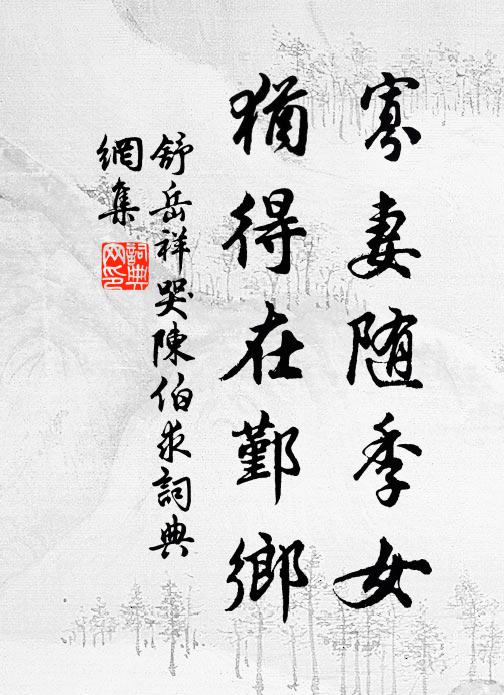 寡妻随季女
猶得在鄞鄉
舒岳祥哭陳伯求詞典
網集
詞典
网印